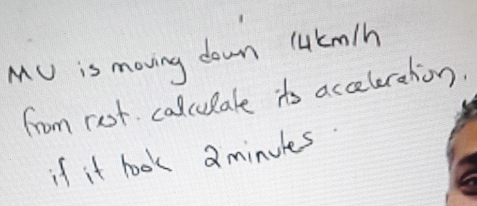 MU is moving down 14km/h
from rest. calculate its acceleration.
if it took 2 minutes.